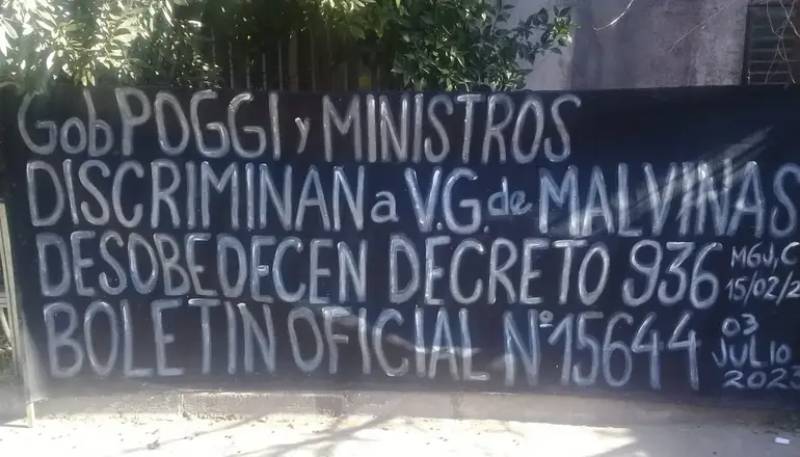 Gob POGGI y MINISTROS
DISCRIMINAN a V.G. de MALVINAS
DESOBEDECEN DECRETO 936
MGJ,C
15/02/2
BOLETIN OFICIAL Nº 15644
03
JULIO
2023